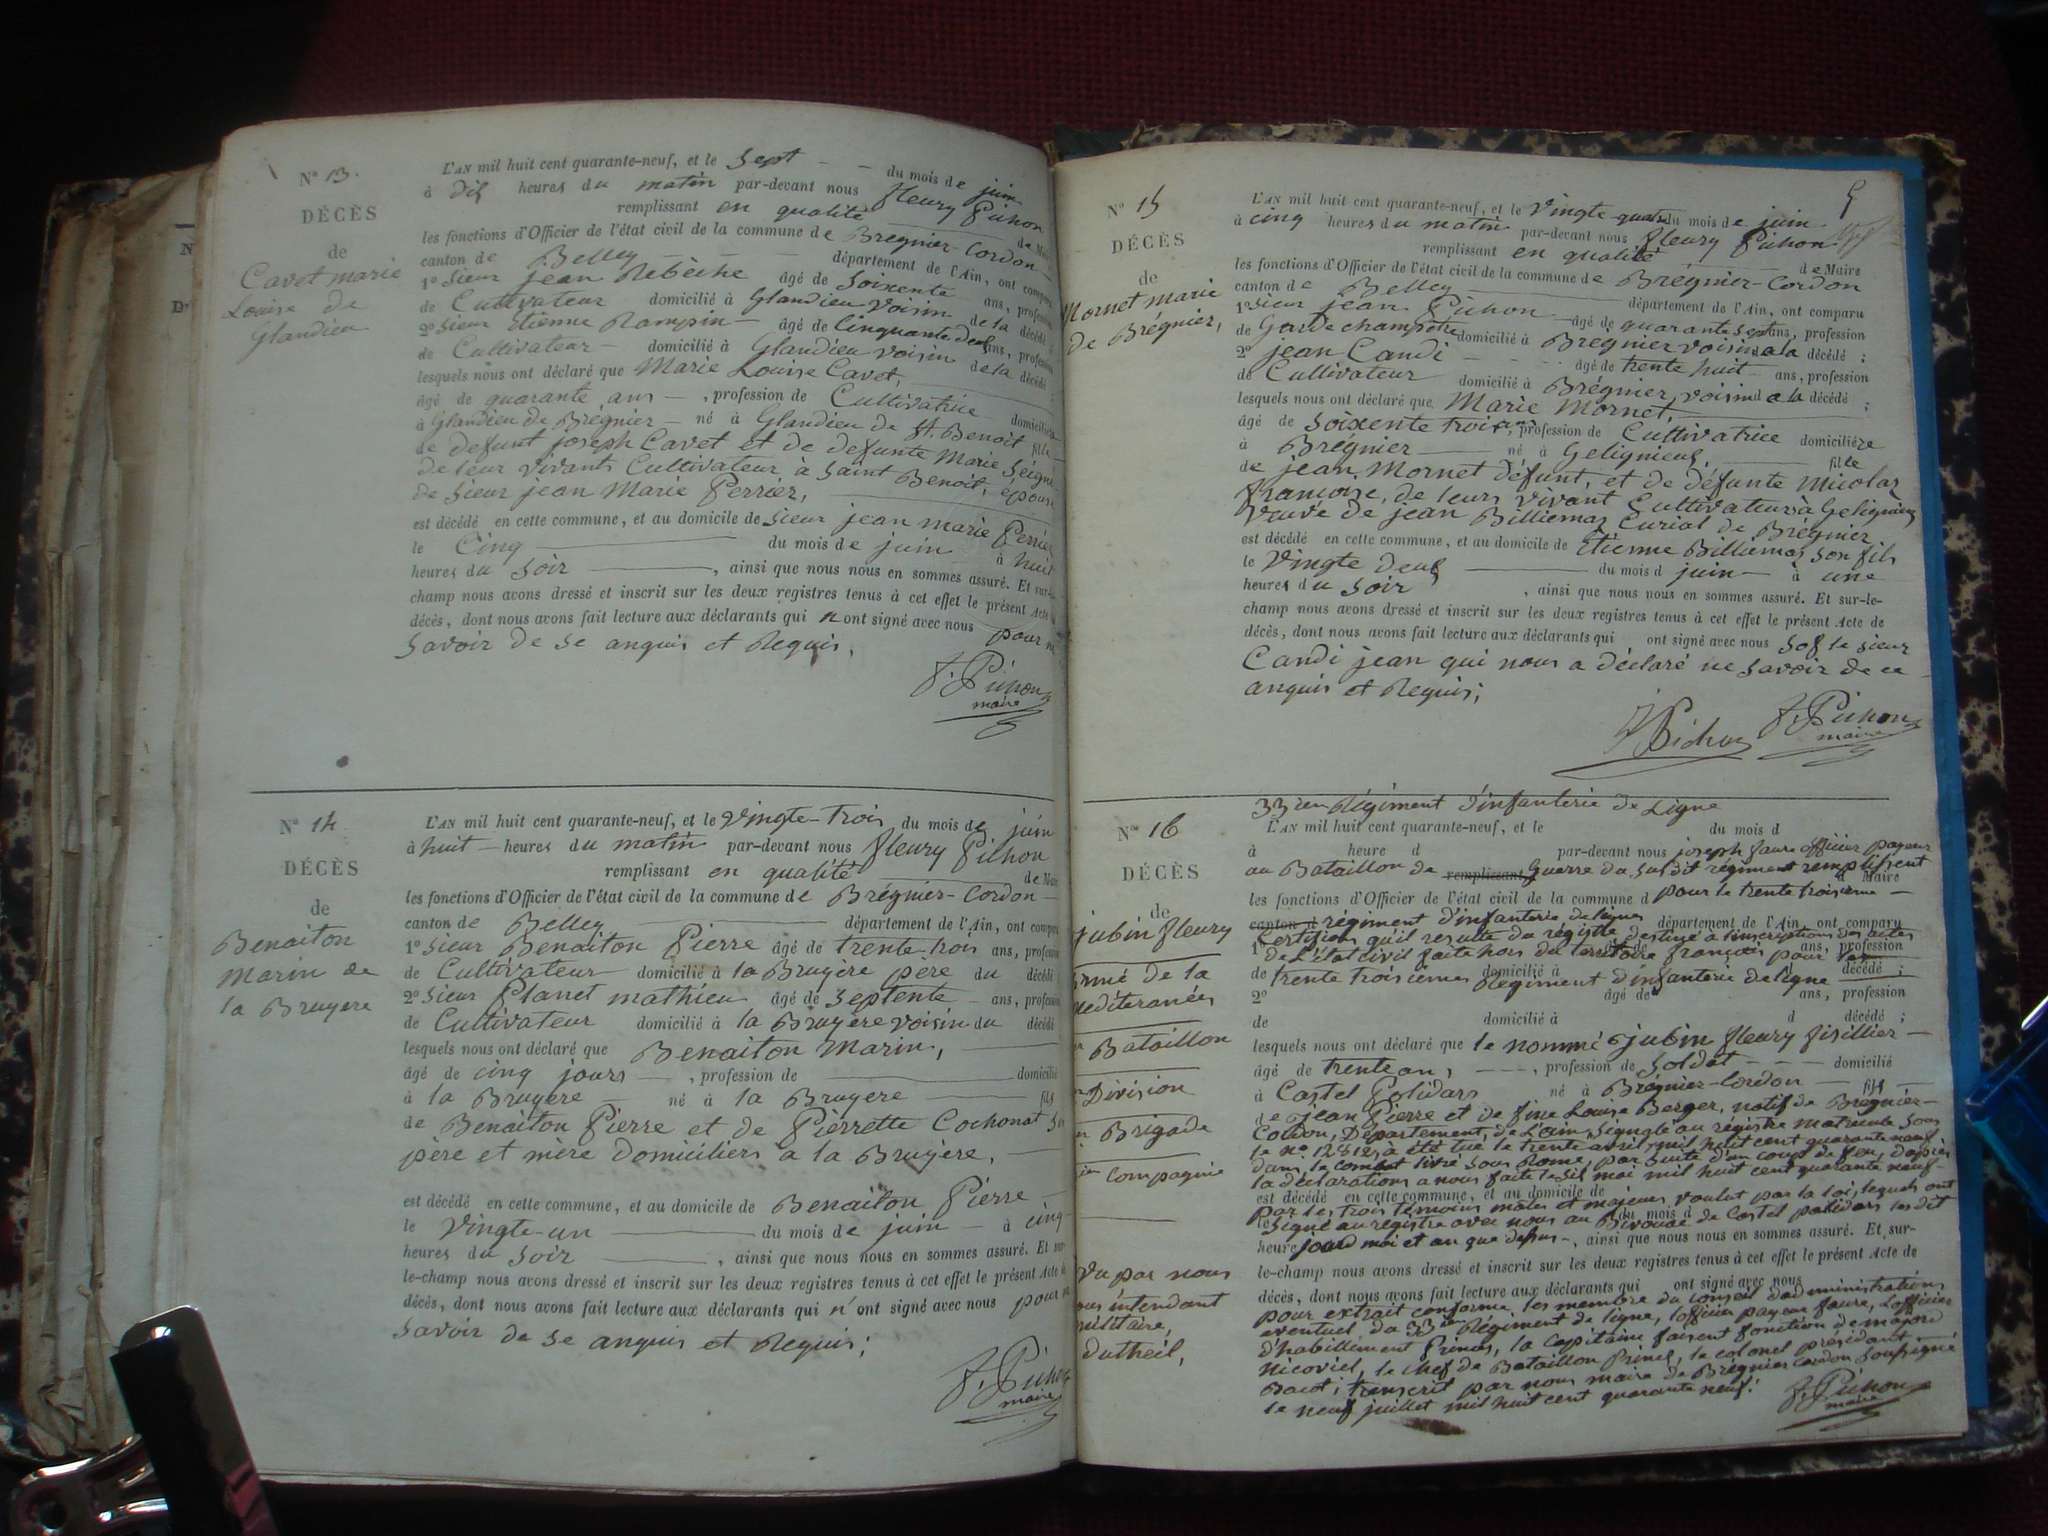 N° 13.
DÉCÈS
de
Cavet marie
Louise de
Glandieu
L'AN mil huit cent quarante-neuf, et le Sept - - du mois de juin
à dix heures du matin par-devant nous fleury Pichon
remplissant en qualité de Maire
les fonctions d'Officier de l'état civil de la commune de Brégnier-Cordon
canton de Belley - - département de l'Ain, ont comparu
1° Sieur jean Rebèche âgé de Soixente ans, profession
de Cultivateur domicilié à Glandieu voisin de la décédé
2° Sieur Etienne Rampin - âgé de Cinquante deux ans, profession
de Cultivateur - domicilié à Glandieu voisin de la décédé
lesquels nous ont déclaré que Marie Louise Cavet,
âgé de quarante ans - , profession de Cultivatrice domiciliée
à Glandieu de Brégnier - né à Glandieu de St. Benoit fille
de defunt joseph Cavet et de defunte Marie
de leur vivants Cultivateur à Saint Benoit, épouse
de Sieur jean Marie Perrier,
est décédé en cette commune, et au domicile de Sieur jean marie Perrier
le Cinq du mois de juin à huit
heures du Soir , ainsi que nous nous en sommes assuré. Et sur-le-
champ nous avons dressé et inscrit sur les deux registres tenus à cet effet le présent Acte de
décès, dont nous avons fait lecture aux déclarants qui n'ont signé avec nous pour ne
Savoir de Se anquis et Requis,
f. Pichon
maire
N° 14
DÉCÈS
de
Benaiton
Marin de
la Bruyere
L'AN mil huit cent quarante-neuf, et le Vingte-trois du mois de juin
à huit - heures du matin par-devant nous fleury Pichon
remplissant en qualité de Maire
les fonctions d'Officier de l'état civil de la commune de Brégnier-Cordon -
canton de Belley département de l'Ain, ont comparu
1° Sieur Benaiton Pierre âgé de trente-trois ans, profession
de Cultivateur - domicilié à la Bruyère père du décédé
2° Sieur Planet mathieu âgé de Septente - ans, profession
de Cultivateur domicilié à la Bruyère voisin du décédé
lesquels nous ont déclaré que Benaiton Marin,
âgé de cinq jours - , profession de domicilié
à la Bruyère - né à la Bruyere fils
de Benaiton Pierre et de Pierrette Cochonat
père et mère domiciliers a la Bruyère,
est décédé en cette commune, et au domicile de Benaiton Pierre -
le Vingte-un du mois de juin - à cinq
heures du Soir , ainsi que nous nous en sommes assuré. Et sur-
le-champ nous avons dressé et inscrit sur les deux registres tenus à cet effet le présent Acte de
décès, dont nous avons fait lecture aux déclarants qui n'ont signé avec nous pour ne
Savoir de Se anquis et Requis;
f. Pichon
maire
5
N° 15
DÉCÈS
de
Mornet marie
de Brégnier,
L'AN mil huit cent quarante-neuf, et le Vingte-quatre du mois de juin
à cinq heures du matin par-devant nous fleury Pichon
remplissant en qualité de Maire
les fonctions d'Officier de l'état civil de la commune de Brégnier-Cordon
canton de Belley département de l'Ain, ont comparu
1° Sieur jean Pichon âgé de quarante Sept ans, profession
de Garde champètre domicilié à Bregnier voisin de la décédé ;
2° jean Candi - - - âgé de trente huit ans, profession
de Cultivateur domicilié à Brégnier, voisin de la décédé ;
lesquels nous ont déclaré que Marie Mornet
âgé de Soixente trois ans, profession de Cultivatrice domicilière
à Brégnier né à Gelignieux, fille
de jean Mornet défunt, et de défunte Micolaz
françoise, de leurs vivant Cultivateurs à Gelignieux
Veuve de jean Billiemaz Curial de Brégnier
est décédé en cette commune, et au domicile de Etienne Billiemaz son fils
le Vingte deux du mois d juin - à une
heures du Soir , ainsi que nous nous en sommes assuré. Et sur-le-
champ nous avons dressé et inscrit sur les deux registres tenus à cet effet le présent Acte de
décès, dont nous avons fait lecture aux déclarants qui ont signé avec nous Sof le sieur
Candi jean qui nous a déclaré ne Savoir de ce
anquis et Requis;
Pichon
f. Pichon
maire
33 ieme Régiment d'infanterie de Ligne
N° 16
DÉCÈS
de
jubin fleury
armé de la
Mediteranée
Bataillon
Division
Brigade
Compagnie
Vu par nous
sous intendant
militaire,
Dutheil,
L'AN mil huit cent quarante-neuf, et le du mois d
à heure d par-devant nous joseph faure officier payeur
au Bataillon de remplissant Guerre du susdit régiment remplissent d Maire
les fonctions d'Officier de l'état civil de la commune d pour le trente troisieme -
canton d régiment d'infanterie de ligne département de l'Ain, ont comparu
Certifions qu'il resulte du registre destiné a l'inscription des actes
1° de L'état civil faite hors du territoire françois pour le ans, profession
de trente troisieme domicilié à Régiment d'infanterie de ligne décédé ;
2° âgé de ans, profession
de domicilié à d décédé ;
lesquels nous ont déclaré que le nommé jubin fleury fisillier -
âgé de trente ans, - - - , profession de Soldat - - - domicilié
à Castel Polidars né à Brégnier-Cordon - fils -
de jean Pierre et de fine Louise Berger, natif de Bregnier-
Cordon, Departement de L'ain, Signalé au registre matricule Sous
le no 12812, a été tué le trente avril mil huit cent quarante neuf
dans le combat livré sous Rome, par Suite d'un coup de feu, d'après
la déclarations a nous faite le Six mai mil huit cent quarante neuf
est décédé en cette commune, et au domicile de
par les trois témoins males et majeurs voulut par la loi, lequels ont
le Signé au registre avec nous au Bivouac du mois d de Castel polidars les dit
heure jour moi et an que dessus -, ainsi que nous nous en sommes assuré. Et sur-
le-champ nous avons dressé et inscrit sur les deux registres tenus à cet effet le présent Acte de
décès, dont nous avons fait lecture aux déclarants qui ont signé avec nous
pour extrait conforme, les membre du conseil d'administration
eventuel du 33 ieme Régiment de ligne, l'officier payeur faure, L'officier
d'habillement Primas, le Capitaine faisent fonction de majord
Nicoviel, le chef de Bataillon Prince, le colonel président
Bacot; transcrit par nous maire de Brégnier cordon Sousigné
le neuf juillet mil huit cent quarante neuf.
f. Pichon
maire